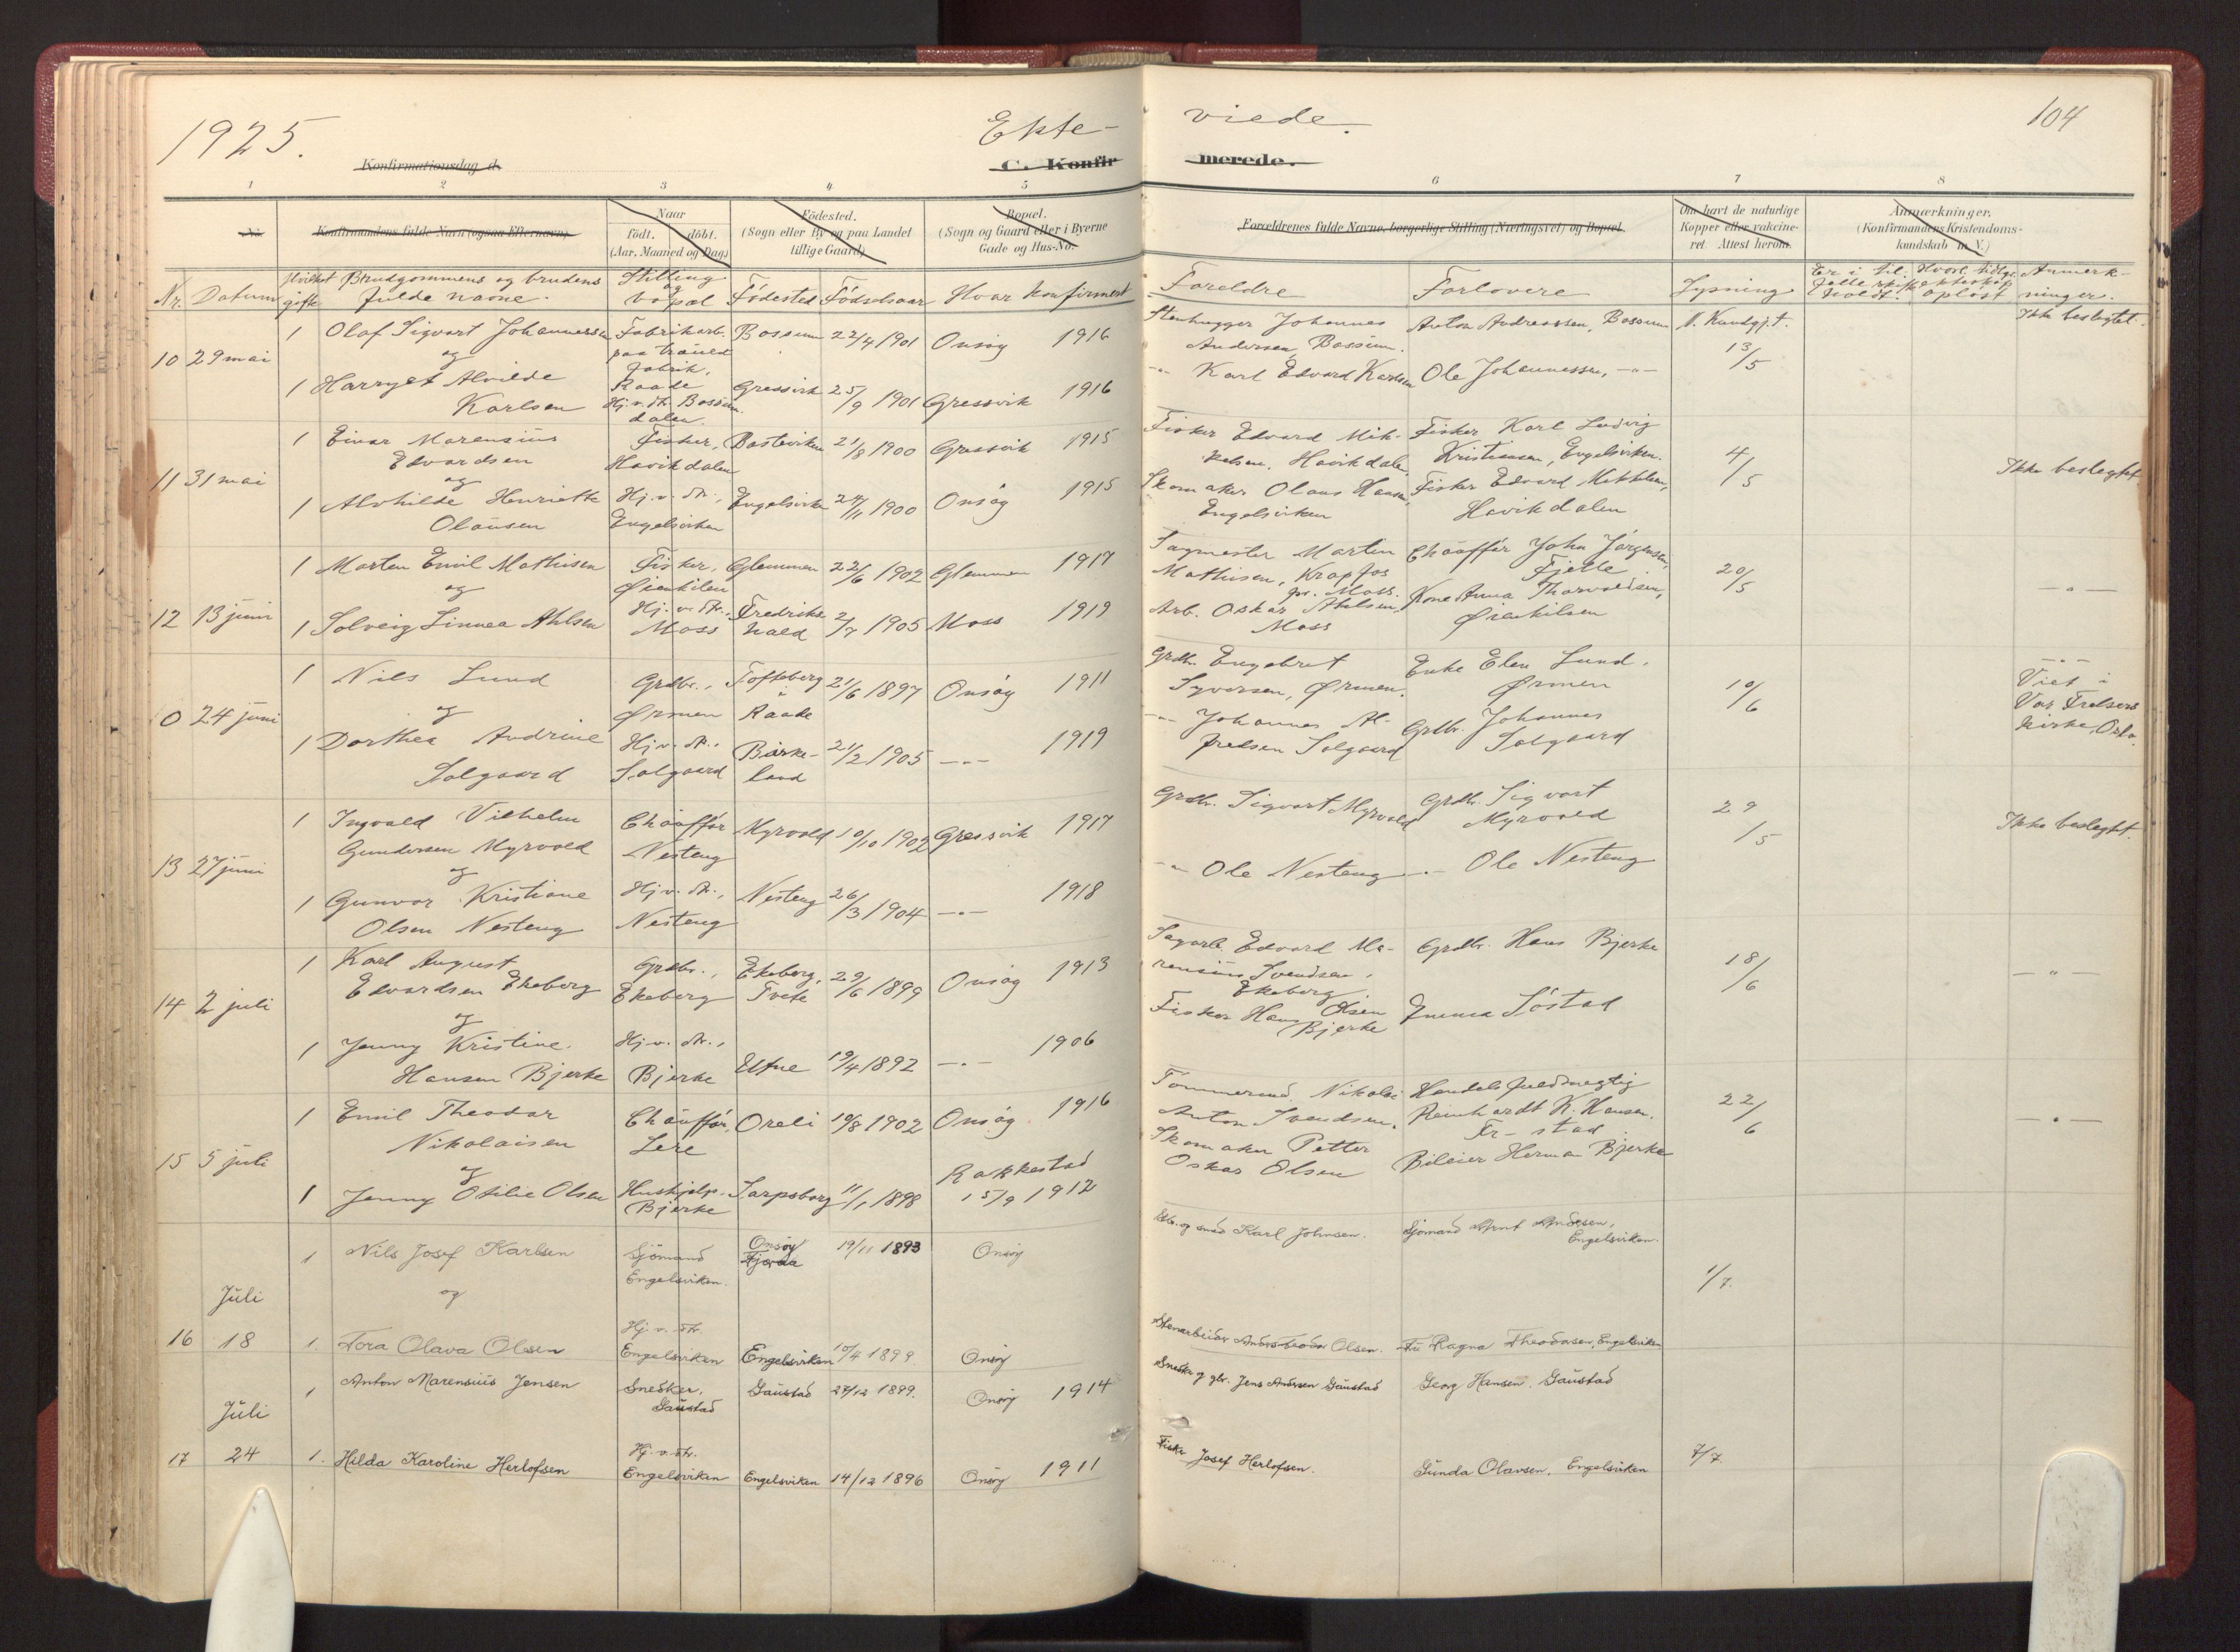 1925.
Ekte-
viede.
104
Konfirmationsdag d.
C. Konfir
merede.
1 2 3 4 5 6 7 8
No.
Konfirmandens fulde Navn (ogsaa Efternavn)
Naar
födt. döbt.
(Aar, Maaned og Dag)
Födested.
(Sogn eller By og paa Landet
tillige Gaard)
Bopæl.
(Sogn og Gaard eller i Byerne
Gade og Hus-No.
Forældrenes fulde Navne, borgerlige Stilling (Næringsvei) og Bopæl.
Om havt de naturlige
Kopper eller vakcine-
ret. Attest herom.
Anmærkninger.
(Konfirmandens Kristendoms-
kundskab m. V.)
Nr. Datum Hvilket gifte
Brudgommens og brudens
fulde navne.
Stilling
og
bopæl
Födested Födselsaar Hvor konfirmert
Foreldre
Forlovere
Lysning
Er i til-
felle skifte
holdt?
Hvorl. tidlgr.
ekteskap
oplöst
Anmerk-
ninger.
10 29 mai
1 Olaf Sigvart Johannessen
Fabrikarb.
paa trauld
fabrik,
Raade
Bossum 22/4 1901 Onsøy 1916
Stenhugger Johannes
Andersen, Bossum.
Anton Andreassen, Bossum
N. Kundgj.t.
13/5
Ikke beslegtet.
og
1 Harryet Alvilde
Karlsen
Hj. v. dtr. Bossum
dalen.
Gressvik 25/9 1901 Gressvik 1916
-"- Karl Edvard Karlsen
Ole Johannessen, -"-
11 31 mai
1 Einar Marensius
Edvardsen
Fisker,
Havikdalen
Basteviken 21/8 1900 Gressvik 1915
Fisker Edvard Mik-
kelsen, Havikdalen,
Fisker Karl Ludvig
Kristiansen, Engelsviken.
4/5
Ikke beslegtet
og
1 Alvhilde Henriette
Olausen
Hj. v. dtr.,
Engelsviken
Engelsviken 24/11 1900 Onsøy 1915
Skomaker Olaus Hansen,
Engelsviken
Fisker Edvard Mikkelsen,
Havikdalen
12 13 juni
1 Morten Emil Mathisen
Fisker,
Øienkilen
Glemmen 22/6 1902 Glemmen 1917
Sagmester Martin
Mathisen, Krapfos
pr. Moss.
Chauffør John Jørgensen,
Fjelle
20/5
-"-
og
1 Solveig Linnea Ahlsen
Hj. v. dtr.,
Moss
Fredriks
hald
2/7 1905 Moss 1919
Arb. Oskar Ahlsen,
Moss
Kone Anna Thorvaldsen,
Øienkilsen
0 24 juni
1 Nils Lund
Grdbr.,
Ørmen
Tofteberg
i
Raade
21/6 1897 Onsøy 1911
Grdbr. Engebret
Syversen, Ørmen.
Enke Elen Lund,
Ørmen
10/6
-"-
Viet i
Vor Frelsers
kirke, Oslo.
og
1 Dorthea Andrine
Solgaard
Hj. v. dtr.,
Solgaard
Bärke-
land
21/2 1905 -"- 1919
-"- Johannes Al-
fredsen Solgaard
Grdbr. Johannes
Solgaard
13 27 juni
1 Ingvald Vilhelm
Gundersen Myrvold
Chauffør
Nesteng
Myrvold 10/10 1902 Gressvik 1917
Grdbr. Sigvart Myrvold
Grdbr. Sigvart
Myrvold
29/5
Ikke beslegtet.
og
1 Gunvor Kristiane
Olsen Nesteng
Hj. v. dtr.,
Nesteng
Nesteng 26/3 1904 -"- 1918
-"- Ole Nesteng
-"- Ole Nesteng
14 2 juli
1 Karl August
Edvardsen Ekeberg
Grdbr.,
Ekeberg
Ekeberg,
Tvete
29/6 1899 Onsøy 1913
Sagarb. Edvard Ma-
rensius Svendsen,
Ekeberg
Grdbr. Hans Bjerke
18/6
-"-
og
1 Jenny Kristine
Hansen Bjerke
Hj. v. dtr.,
Bjerke
Utne 19/4 1892 -"- 1906
Fisker Hans Olsen
Bjerke
Emma Söstad
15 5 juli
1 Emil Theodor
Nikolaisen
Chauffør,
Lere
Oreli 10/8 1902 Onsøy 1916
Tømmermd. Nikolai
Anton Svendsen,
Handelsfuldmegtig
Reinhardt K. Hansen,
Fr-stad
22/6
-"-
og
1 Jenny Otilie Olsen
Hushjelp,
Bjerke
Sarpsborg 11/1 1898
Rakkestad
15/9 1912
Skomaker Petter
Oskar Olsen
Bileier Herman Bjerke
1 Nils Josef Karlsen
Sjömand
Engelsviken.
Onsøy
Fjørda
19/11 1893 Onsøy
Gbr. og smed Karl Johnsen.
Sjömand Arnt Andersen,
Engelsviken.
1/7.
Juli
og
16 18 1. Tora Olava Olsen
Hj. v. dtr.
Engelsviken
Engelsviken 10/4 1899 Onsøy
Stenarbeider Olsen.
Fru Ragna Theodorsen, Engelsviken
1 Anton Marensius Jensen
Snedker,
Gaustad
Gaustad 27/12 1899. Onsøy 1914
Snedker og gbr. Jens Andersen Gaustad
Georg Hansen, Gaustad
Juli
17 24 1. Hilda Karoline Herlofsen
Hj. v. dtr.
Engelsviken
Engelsviken 14/12 1896 Onsøy 1911
Fisker Josef Herlofsen.
Gunda Olavsen, Engelsviken
7/7